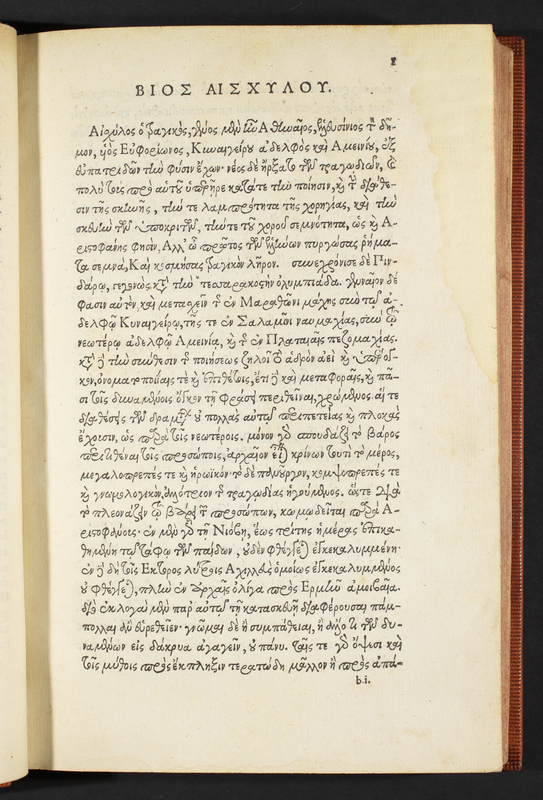 ΒΙΟΣ ΑΙΣΧΥΛΟΥ.
Αἰσχύλος ὁ τραγικὸς, γένος μὲν ἦν Ἀθηναῖος, ἐλευσίνιος τὸν δῆ-
μον, υἱὸς Εὐφορίωνος, Κυναιγείρου ἀδελφὸς καὶ Ἀμεινίου, ἐξ
εὐπατριδῶν τὴν φύσιν ἔχων· νέος δὲ ἤρξατο τῶν τραγωδιῶν, καὶ
πολὺ τοὺς πρὸ αὐτοῦ ὑπερῆρε κατάτε τὴν ποίησιν, καὶ τὴν διάθε-
σιν τῆς σκηνῆς, τήν τε λαμπρότητα τῆς χορηγίας, καὶ τὴν
σκευὴν τῶν ὑποκριτῶν, τήν τε τοῦ χοροῦ σεμνότητα, ὡς καὶ Ἀ-
ριστοφάνης φησὶν, Ἀλλ' ὦ πρῶτος τῶν ἑλλήνων πυργώσας ῥήμα-
τα σεμνὰ, Καὶ κοσμήσας τραγικὸν λῆρον. συνεχρόνισε δὲ Πιν-
δάρῳ, γεγονὼς κατὰ τὴν τεσσαρακοστὴν ὀλυμπιάδα. γενναῖον δέ
φασιν αὐτὸν, καὶ μετασχεῖν τῆς ἐν Μαραθῶνι μάχης σὺν τῷ ἀ-
δελφῷ Κυναιγείρῳ, τῆς τε ἐν Σαλαμῖνι ναυμαχίας, σὺν τῷ
νεωτέρῳ ἀδελφῷ Ἀμεινίᾳ, καὶ τῆς ἐν Πλαταιαῖς πεζομαχίας.
κατὰ δὲ τὴν σύνθεσιν τῆς ποιήσεως ζηλοῖ τὸ ἁδρὸν ἀεὶ καὶ ὑπέρογ-
κον, ὀνοματοποιίαις τὲ καὶ ἐπιθέτοις, ἔτι δὲ καὶ μεταφοραῖς, καὶ πᾶ-
σι τοῖς δυναμένοις ὄγκον τῇ φράσει περιθεῖναι, χρώμενος. αἵ τε
διαθέσεις τῶν δραμάτων οὐ πολλὰς αὐτῷ περιπετείας καὶ πλοκὰς
ἔχουσιν, ὡς παρὰ τοῖς νεωτέροις. μόνον γὰρ σπουδάζει τὸ βάρος
περιτιθέναι τοῖς προσώποις, ἀρχαῖον εἶναι κρίνων τουτὶ τὸ μέρος,
μεγαλοπρεπές τε καὶ ἡρωϊκόν· τὸ δὲ πανοῦργον, κομψοπρεπές τε
καὶ γνωμολογικὸν, ἀλλότριον τῆς τραγωδίας ἡγούμενος. ὥστε διὰ
τὸ πλεονάζειν τῷ βάρει τῶν προσώπων, κωμῳδεῖται παρὰ Ἀ-
ριστοφάνους· ἐν μὲν γὰρ τῇ Νιόβῃ, ἕως τρίτης ἡμέρας ἐπικα-
θημένη τῷ τάφῳ τῶν παίδων, οὐδὲν φθέγγεται ἐγκεκαλυμμένη·
ἐν δὲ τοῖς Ἕκτορος λύτροις Ἀχιλλεὺς ὁμοίως ἐγκεκαλυμμένος
οὐ φθέγγεται, πλὴν ἐν ἀρχαῖς ὀλίγα πρὸς Ἑρμῆν ἀμοιβαῖα.
διὸ ἐκλογαὶ μὲν παρ' αὐτῷ τῇ κατασκευῇ διαφέρουσαι πάμ-
πολλαι ἂν εὑρεθεῖεν· γνῶμαι δὲ ἢ συμπάθειαι, ἢ ἄλλο τι τῶν δυ-
ναμένων εἰς δάκρυα ἀγαγεῖν, οὐ πάνυ. ταῖς τε γὰρ ὄψεσι καὶ
τοῖς μύθοις πρὸς ἔκπληξιν τερατώδη μᾶλλον ἢ πρὸς ἀπά-
b.i.